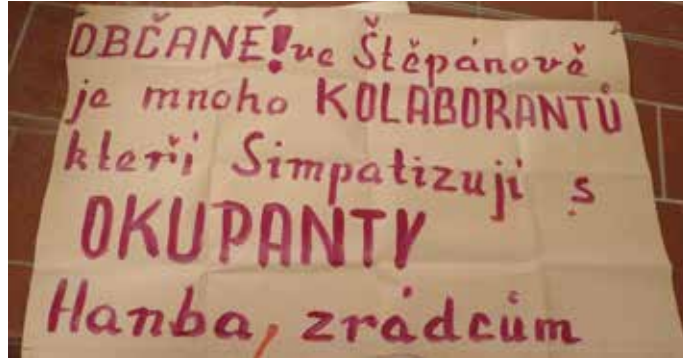 OBČANÉ! ve Štěpánově
je mnoho KOLABORANTŮ
kteři Simpatizuji s
OKUPANTY
Hanba, zrádcům